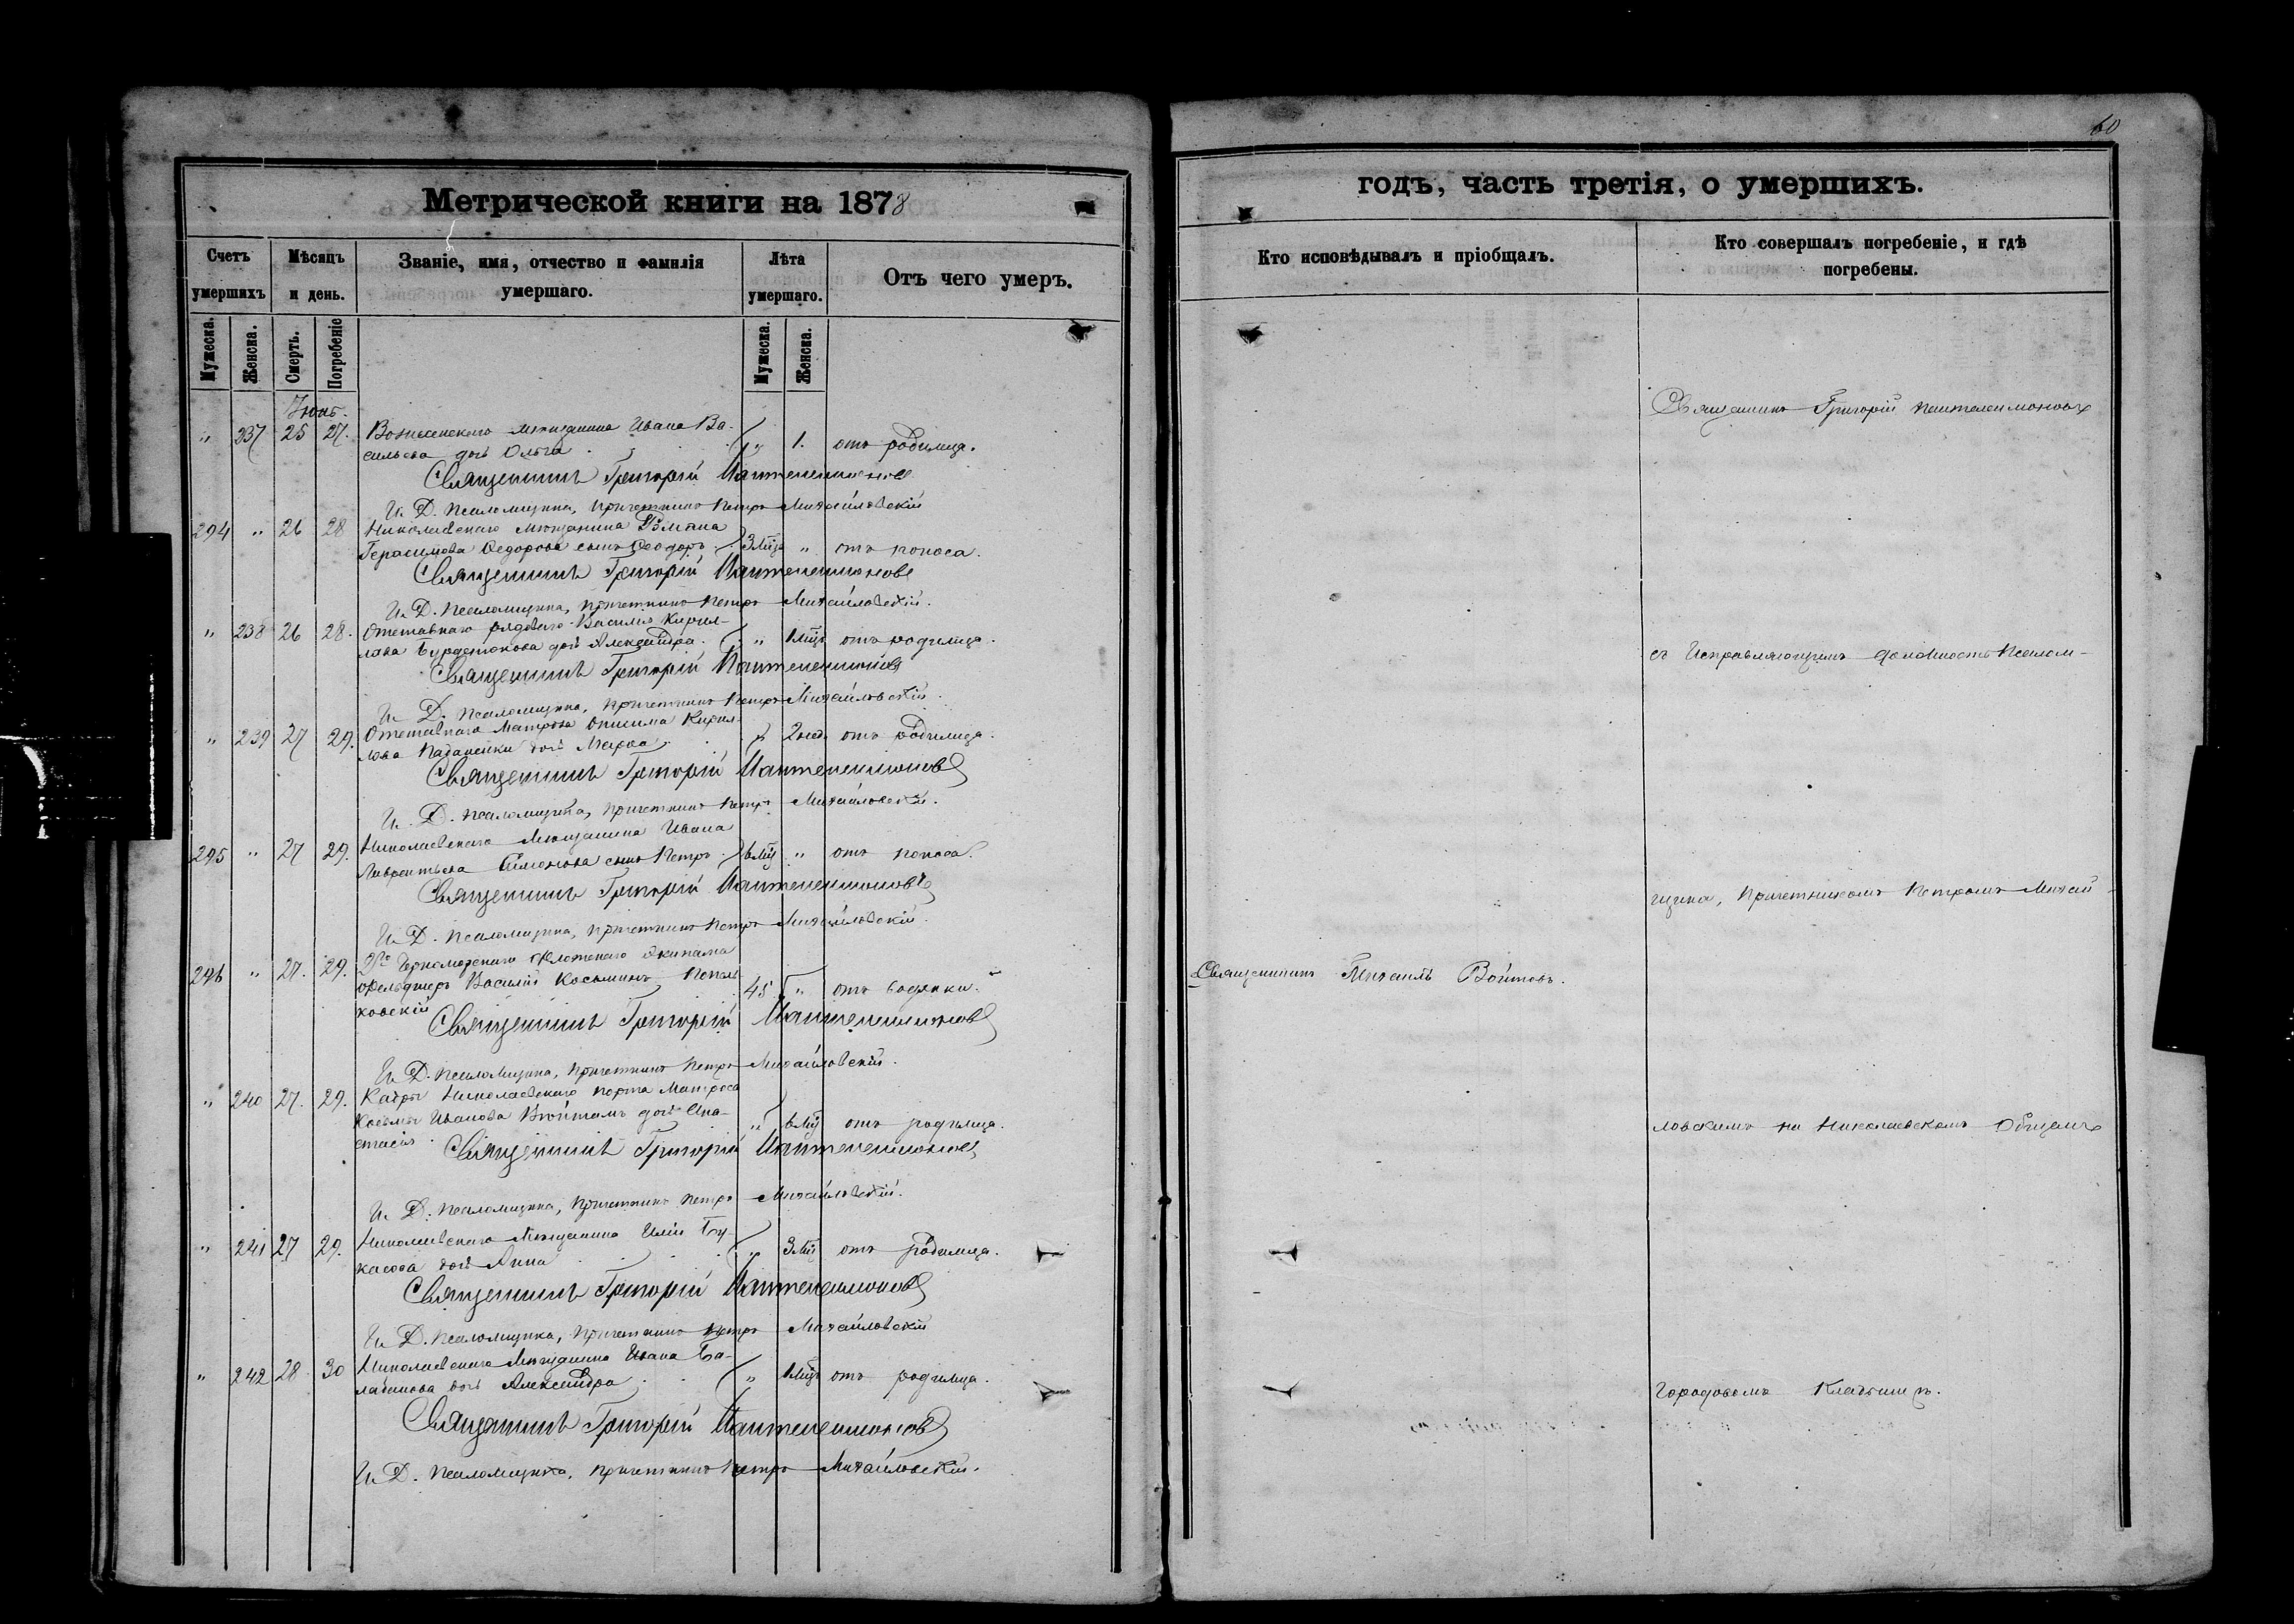 60
Метрической книги на 1878
годъ, часть третія, о умершихъ.
Счетъ умершихъ
Мѣсяцъ и день.
Званіе, имя, отчество и фамилія умершаго.
Лѣта умершаго.
Отъ чего умеръ.
Кто исповѣдывалъ и пріобщалъ.
Кто совершалъ погребеніе, и гдѣ погребены.
Мужеска. Женска. Смерть. Погребеніе Мужеска. Женска.
" 237 25 27. Вознесенскаго мѣщанина Ивана Ва-
сильева дочь Ольга " 1. отъ родимца.
Священникъ Григорій Пантелеимоновъ
И. Д. Псаломщика, Причетникъ Петръ Михайловскій
294 " 26 28 Николаевскаго мѣщанина Романа
Герасимова Ѳедорова сынъ Ѳеодоръ. 3 мцъ " отъ поноса.
Священникъ Григорій Пантелеимоновъ
И. Д. Псаломщика, Причетникъ Петръ Михайловскій.
" 238 26 28. Отставнаго рядового Василія Кирил-
лова дочь Александра. " 1 мцъ отъ родимца.
Священникъ Григорій Пантелеимоновъ
И. Д. Псаломщика, Причетникъ Петръ Михайловскій.
" 239 27 29. Отставнаго Матроса Онисима Кирил-
лова дочь " 2 нед. отъ родимца.
Священникъ Григорій Пантелеимоновъ
И. Д. Псаломщика, Причетникъ Петръ Михайловскій.
295 " 27 29. Николаевскаго Мѣщанина Ивана
Лаврентьева Симонова сынъ Петръ. 6 мцъ " отъ поноса.
Священникъ Григорій Пантелеимоновъ
И. Д. Псаломщика, Причетникъ Петръ Михайловскій.
296 " 27. 29. 2го Черноморскаго Флотскаго Экипажа
Фельдшеръ Василій Косьминъ
ковскій 45 " отъ водянки.
Священникъ Григорій Пантелеимоновъ
И. Д. Псаломщика, Причетникъ Петръ Михайловскій.
" 240 27. 29. Николаевскаго порта Матроса
Косьмы Иванова дочь Ана-
стасія. " 6 мцъ отъ родимца.
Священникъ Григорій Пантелеимоновъ
И. Д. Псаломщика, Причетникъ Петръ Михайловскій.
" 241 27 29. Николаевскаго Мѣщанина Иліи
дочь Анна " 3 мцъ отъ родимца.
Священникъ Григорій Пантелеимоновъ
И. Д. Псаломщика, Причетникъ Петръ Михайловскій
" 242 28 30 Николаевскаго Мѣщанина Ивана Ба-
лабанова дочь Александра. " 1 мцъ отъ родимца.
Священникъ Григорій Пантелеимоновъ
И. Д. Псаломщика, Причетникъ Петръ Михайловскій.
Священникъ Михаилъ Войтовъ.
Священникъ Григорій Пантелеимоновъ
съ Исправляющимъ должность Псалом-
щика, Причетникомъ Петромъ Михай-
ловскимъ на Николаевскомъ Общемъ
Городовомъ Кладбищѣ.